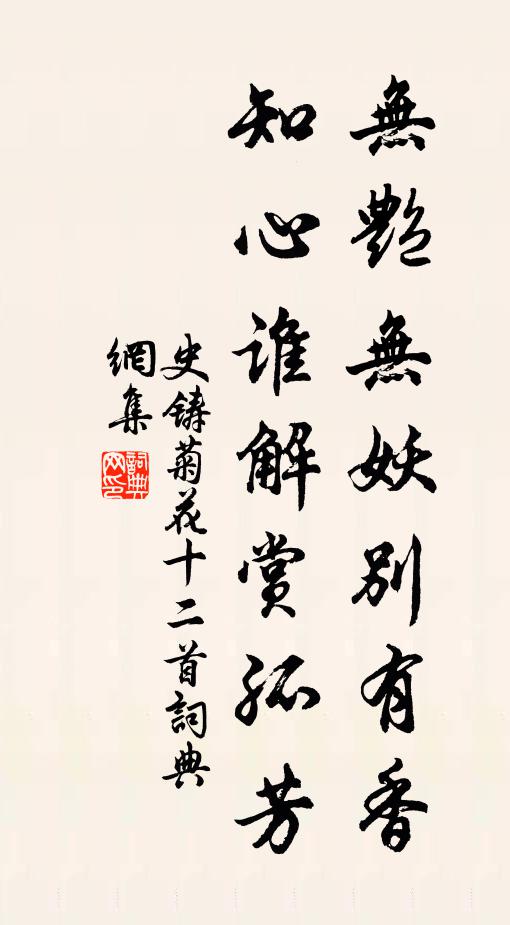 無艷無妖別有香
知心誰解賞孤芳
史铸菊花十二首詞典
網集
詞典
网印